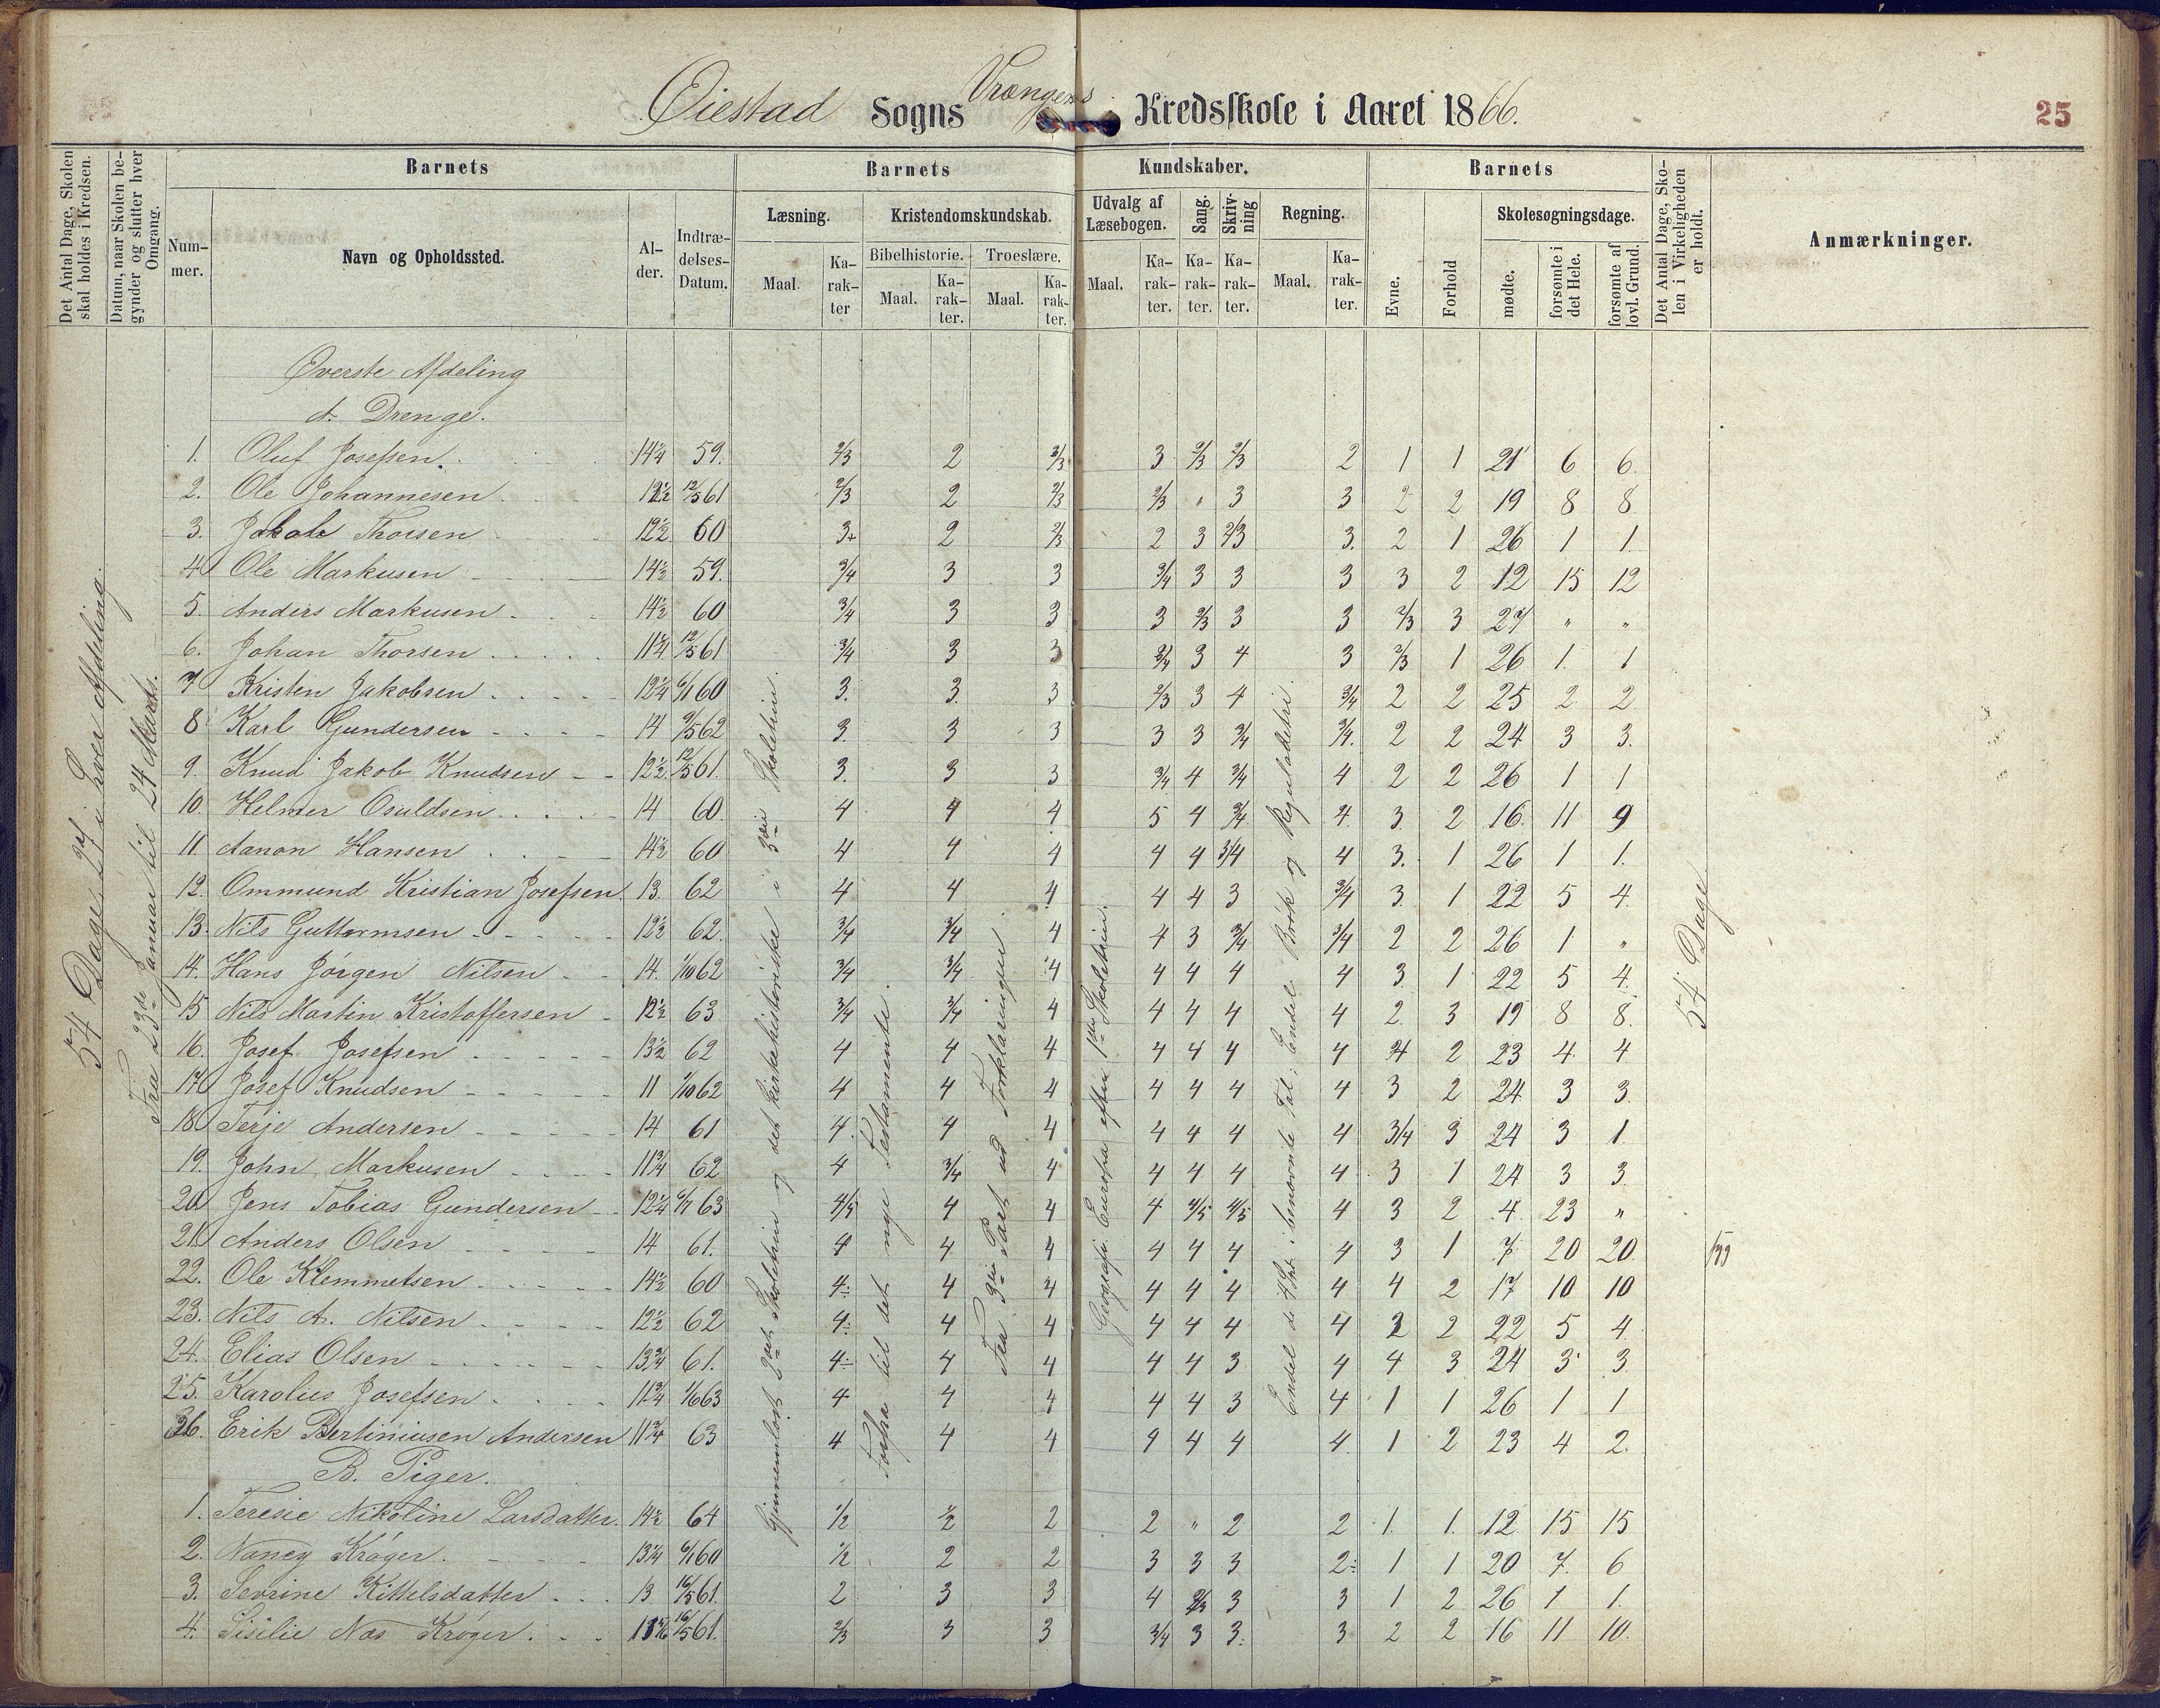 Øiestad Sogns Vrangens Kredsskole i Aaret 1866.
25
Det Antal Dage, Skolen skal holdes i Kredsen.
Datum, naar Skolen begynder og slutter hver Omgang.
Barnets
Nummer.
Navn og Opholdssted.
Alder.
Indtrædelses-Datum.
Barnets Kundskaber.
Læsning.
Maal. Karakter
Kristendomskundskab.
Bibelhistorie.
Maal. Karakter.
Troeslære.
Maal. Karakter.
Udvalg af Læsebogen.
Maal. Karakter.
Sang. Karakter.
Skrivning Karakter.
Regning.
Maal. Karakter.
Barnets
Evne.
Forhold
Skolesøgningsdage.
mødte.
forsømte i det Hele.
forsømte af lovl. Grund.
Det Antal Dage, Skolen i Virkeligheden er holdt.
Anmærkninger.
54 Dage, 27 i hver Afdeling.
Fra 23de Januar til 24 Marts.
Gjennemløst 2det Skoletrin og det kirkehistoriske i 3die Skoletrin.
Forfra til det nye Testamente.
Fra 3die Part ud Forklaringen
Geografi. Europa efter 1ste Skoletrin.
Endel de 4 Spt. i benævnte Tal; Endel Brøk og Reguladetri.
54 Dage
Øverste Afdeling
A. Drenge.
1. Oluf Josefsen. 14¼ 59. 2/3 2 2/3 3 2/3 2/3 2 1 1 21 6 6
2. Ole Johannesen. 12½ 12/5 61 2/3 2 2/3 2/3 " 3 3 2 2 19 8 8
3. Jakob Thorsen 12½ 60 3+ 2 2/3 2 3 2/3 3. 2 1 26 1 1
4 Ole Markusen 14½ 59. 3/4 3 3 3/4 3 3 3 3 2 12 15 12
5. Anders Markusen 14½ 60 3/4 3 3 3 2/3 3 3 2/3 3 27 " "
6. Johan Thorsen 11¼ 12/5 61 3/4 3 3 3/4 3 4 3 2/3 1 26 1. 1
7 Kristen Jakobsen 12¼ 6/1 60 3. 3. 3 2/3 3 4 3/4 2 2 25 2 2
8 Karl Gundersen 14 9/5 62 3. 3 3 3 3 3/4 3/4. 2 2 24 3 3.
9. Knud Jakob Knudsen 12½ 12/5 61. 3. 3 3 3/4 4 3/4 4 2 2 26 1 1
10. Helmer Osuldsen 14 60. 4 4 4 5 4 3/4 4. 3. 2 16. 11 9
11. Aanon Hansen 14½ 60 4 4 4 4 4 3/4 4 3. 1 26 1 1.
12. Ommund Kristian Josefsen. 13. 62 4 4 4 4 4 3 3/4 3. 1 22 5 4.
13. Nils Guttormsen 12½ 62. 3/4 3/4 4 4 3 3/4 3/4 2 2 26 1 "
14. Hans Jörgen Nilsen 14. 1/10 62 3/4 3/4 4 4 4 4 4 3. 1 22 5 4.
15 Nils Martin Kristoffersen 12½ 63 3/4 3/4 4 4 4 4 4 2. 3 19 8 8.
16. Josef Josefsen 13½ 62 4 4 4 4 4 4 4 2 23 4 4
17. Josef Knudsen 11 1/10 62 4 4 4 4 4 4 4 3 2 24 3 3.
18. Terje Andersen 14 61 4. 4 4 4 4 4 4 3/4 3 24 3 1.
19. John Markusen 11¾ 62 4 3/4 4 4 4 4 4 3 1 24 3 3.
20. Jens Tobias Gundersen 12¼ 6/7 63 4/5 4 4 4 4/5 4/5 4 3 2 4 23 "
21. Anders Olsen 14 61. 4 4 4 4 4 4 4 3 1 7 20 20.
22. Ole Klemmetsen 14½ 60 4÷ 4 4 4 4 4 4 4 2 17 10 10
23. Nils A. Nilsen 12½ 62 4÷ 4 4 4 4 4 4 2 22 5 4.
24. Elias Olsen 13¾ 61. 4÷ 4 4 4 4 3 4 4 3 24 3 3
25. Karolius Josefsen 11¾ 63 4 4 4 4 4 3 4 1 1 26 1 1
26. Erik Bertiniusen Andersen 11¾ 63 4 4 4 4 4 4 4. 1 2 23 4 2.
B. Piger.
1. Teresie Nikoline Larsdatter. 14½ 64 1/2 1/2 2 2 " 2 2 1. 1. 12 15 15
2. Nancy Krøger. 13¼ 6/1 60 1/2 2 2 3 3 3 2÷ 1 1 20 7. 6
3. Sevrine Kittelsdatter 13 16/5 61. 2 3 3 4 2/3 3 3 1 2 26 1 1.
4. Sisilie Næs Krøger. 16/5 61. 2/3 3 3 3/4 3 3. 3 2 2 16 11 10.